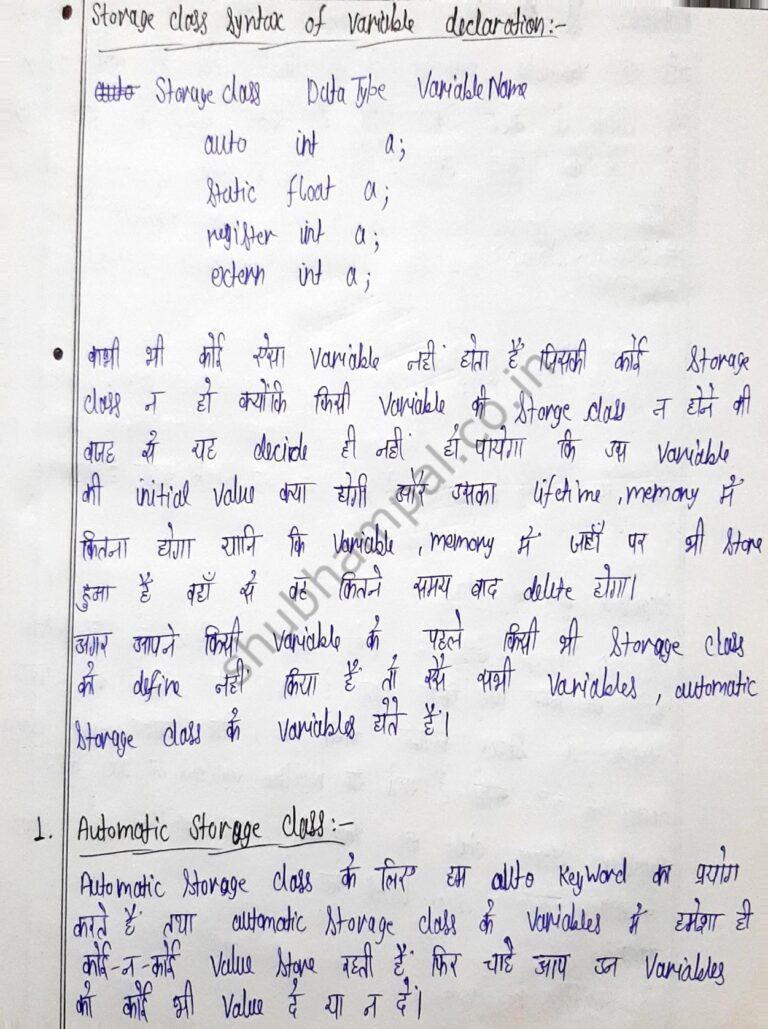 • Storage class syntax of variable declaration:-
Storage class Data Type Variable Name
auto int a;
static float a;
register int a;
extern int a;
• कभी भी कोई ऐसा variable नहीं होता है जिसकी कोई storage
class न हो क्योंकि किसी variable की storage class न होने की
वजह से यह decide ही नहीं हो पायेगा कि उस variable
की initial value क्या होगी और उसका lifetime, memory में
कितना होगा यानि कि variable, memory में जहाँ पर भी store
हुआ है वहाँ से वह कितने समय बाद delete होगा।
अगर आपने किसी variable के पहले किसी भी storage class
को define नहीं किया है तो वैसे सभी variables, automatic
storage class के variables होते हैं।
1. Automatic Storage class:-
Automatic storage class के लिए हम auto keyword का प्रयोग
करते हैं तथा automatic storage class के variables में हमेशा ही
कोई-न-कोई value store रहती है फिर चाहे आप उन variables
को कोई भी value दें या न दें।
shubhampal.co.in